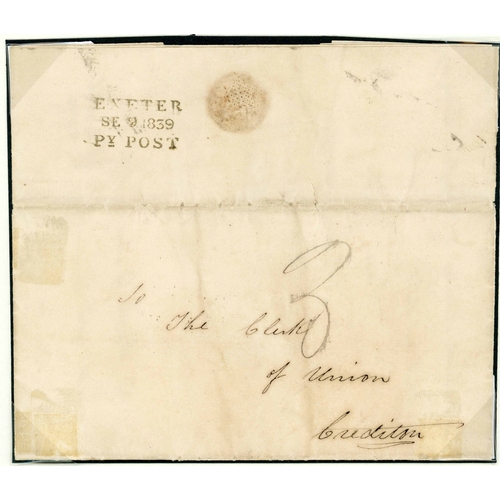 EXETER
SE 9 1839
PY POST
3
To
The Clerk
of Union
Crediton